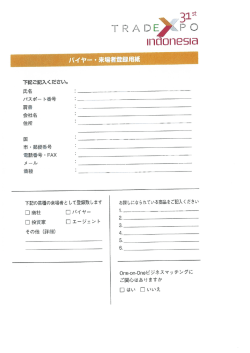 31st
TRADE XPO
indonesia
バイヤー・来場者登録用紙
下記ご記入ください。
氏名
パスポート番号
会社名
住所
国
市・郵便番号
電話番号・FAX
メール
下記の業種の来場者として登録致します
□商社 □バイヤー
□エージェント
その他（詳細）
お探しになられている商品をご記入ください
1.
2.
3.
4.
5.
6.
One-on-Oneビジネスマッチングに
ご関心はありますか
□はい □いいえ